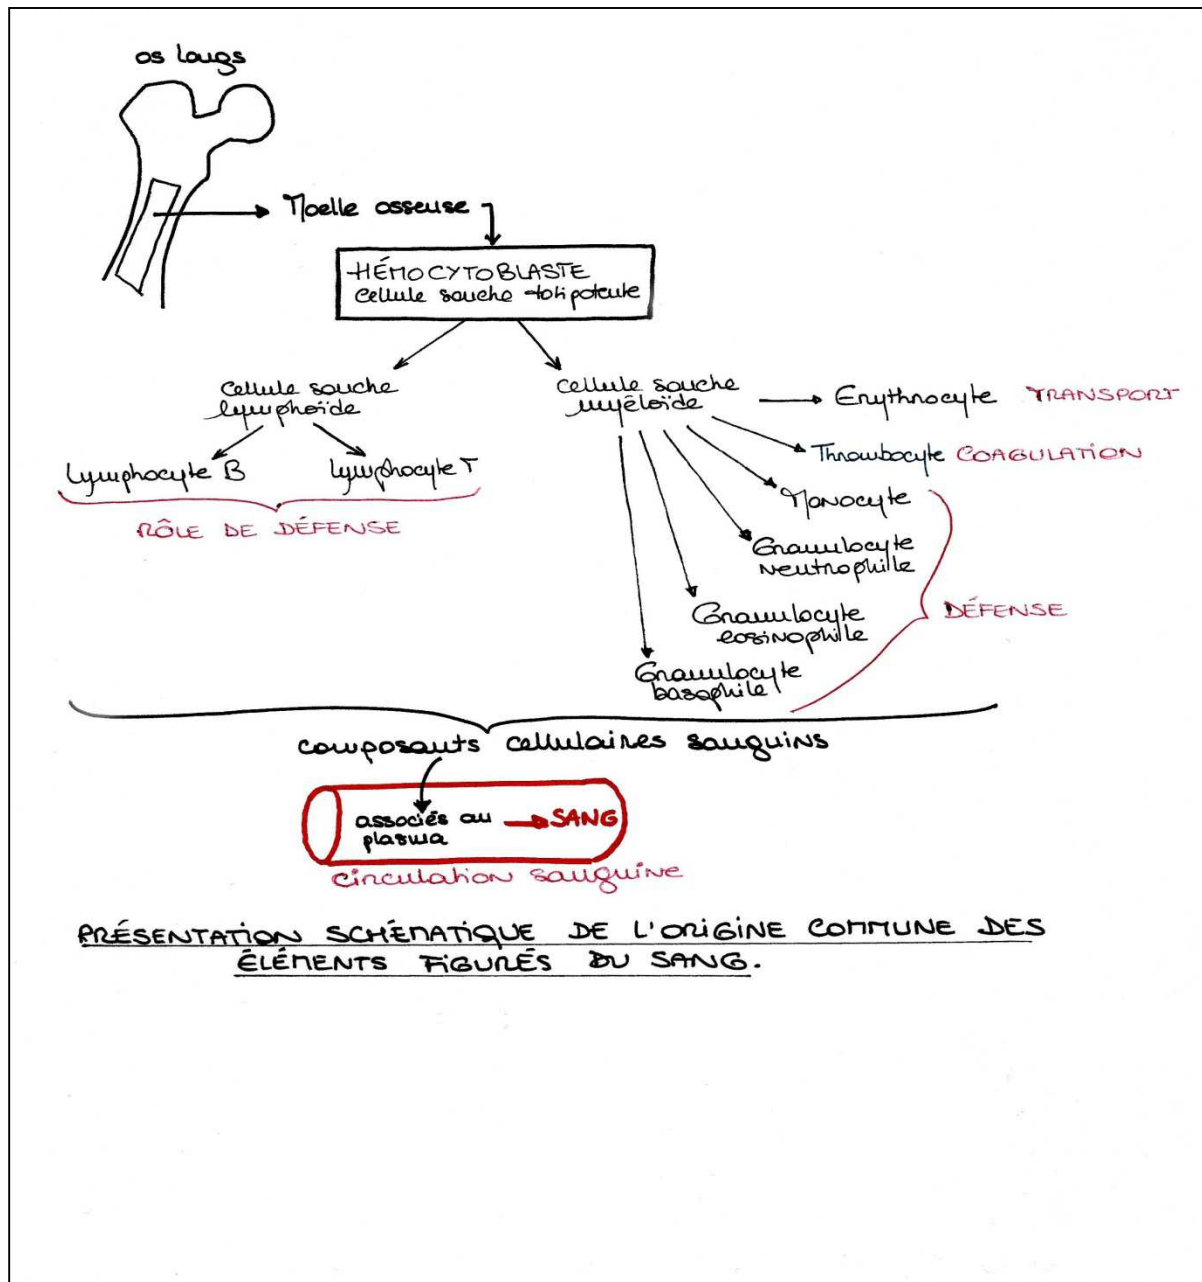 os longs
Moelle osseuse
HÉMOCYTOBLASTE
cellule souche totipotente
cellule souche
lymphoïde
cellule souche
myéloïde
Erythrocyte TRANSPORT
Thrombocyte COAGULATION
Lymphocyte B
Lymphocyte T
RÔLE DE DÉFENSE
Monocyte
Granulocyte
neutrophille
Granulocyte
eosinophille
DÉFENSE
Granulocyte
basophile
composants cellulaires sanguins
associés au
plasma
SANG
circulation sanguine
PRÉSENTATION SCHÉMATIQUE DE L'ORIGINE COMMUNE DES
ÉLÉMENTS FIGURÉS DU SANG.